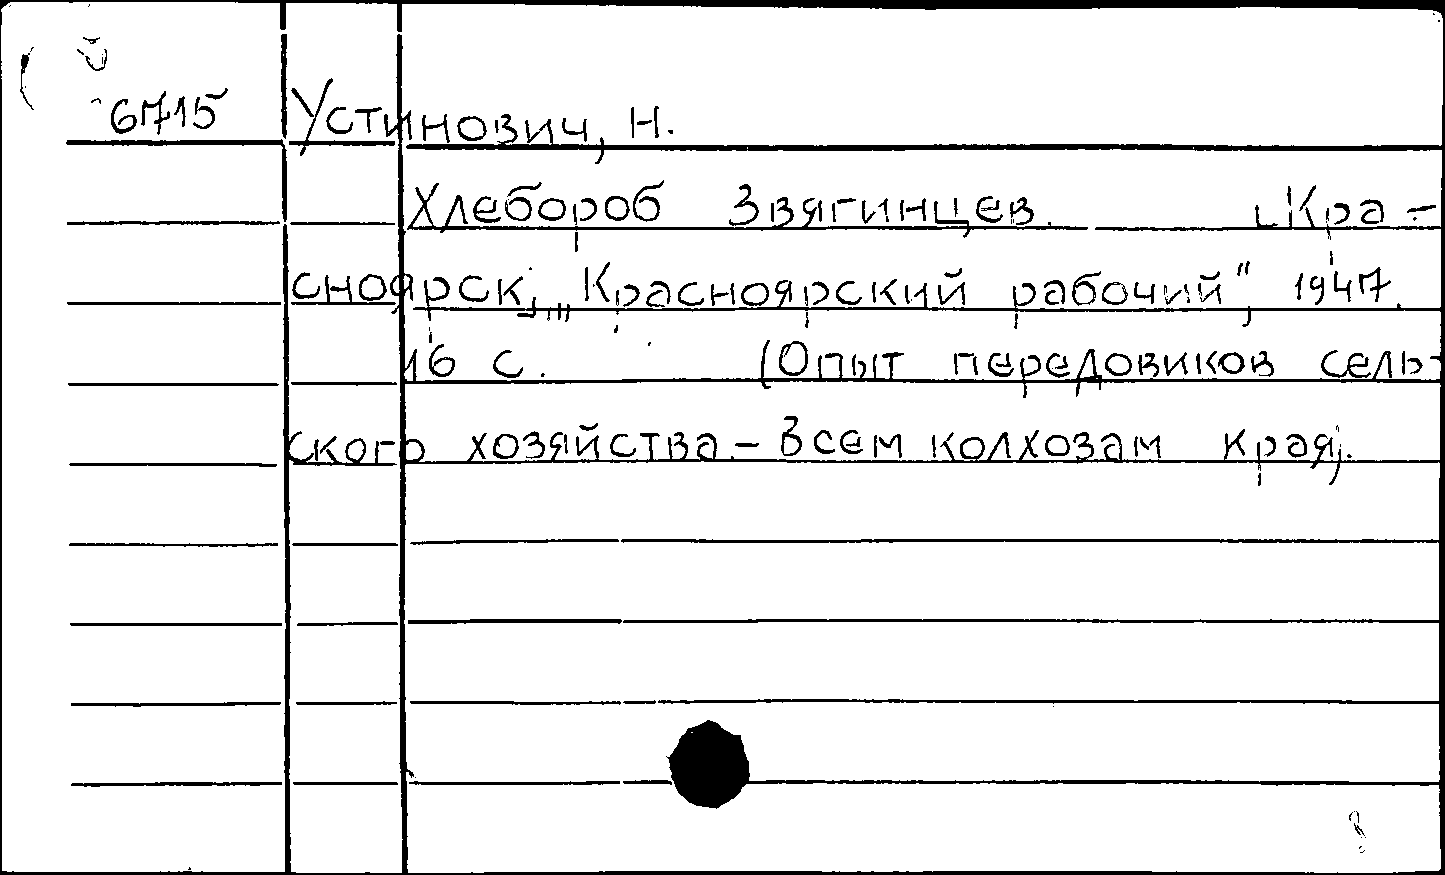 6715 Устинович, Н.
Хлебороб Звягинцев. [Кра-
сноярск, „Красноярский рабочий", 1947.
16 с. (Опыт передовиков сель-
ского хозяйства - всем колхозам края).